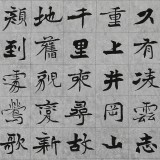 久有凌雲志
重上井岡山
千里來尋故
地舊貌變新
顏到處鶯歌